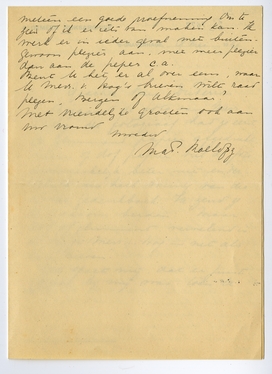 meteen een goede proefneming om te
zien of ik er iets van maken kan. Ik
werk er in ieder geval met buiten-
gewoon plezier aan. met meer plezier
dan aan de peper c.a.
Bent U het er al over eens, waar
U Mevr. v. brieven wilt raad
plegen, Bergen of Alkmaar?
Met vriendelijke groeten ook aan
Uw vrouw
moeder